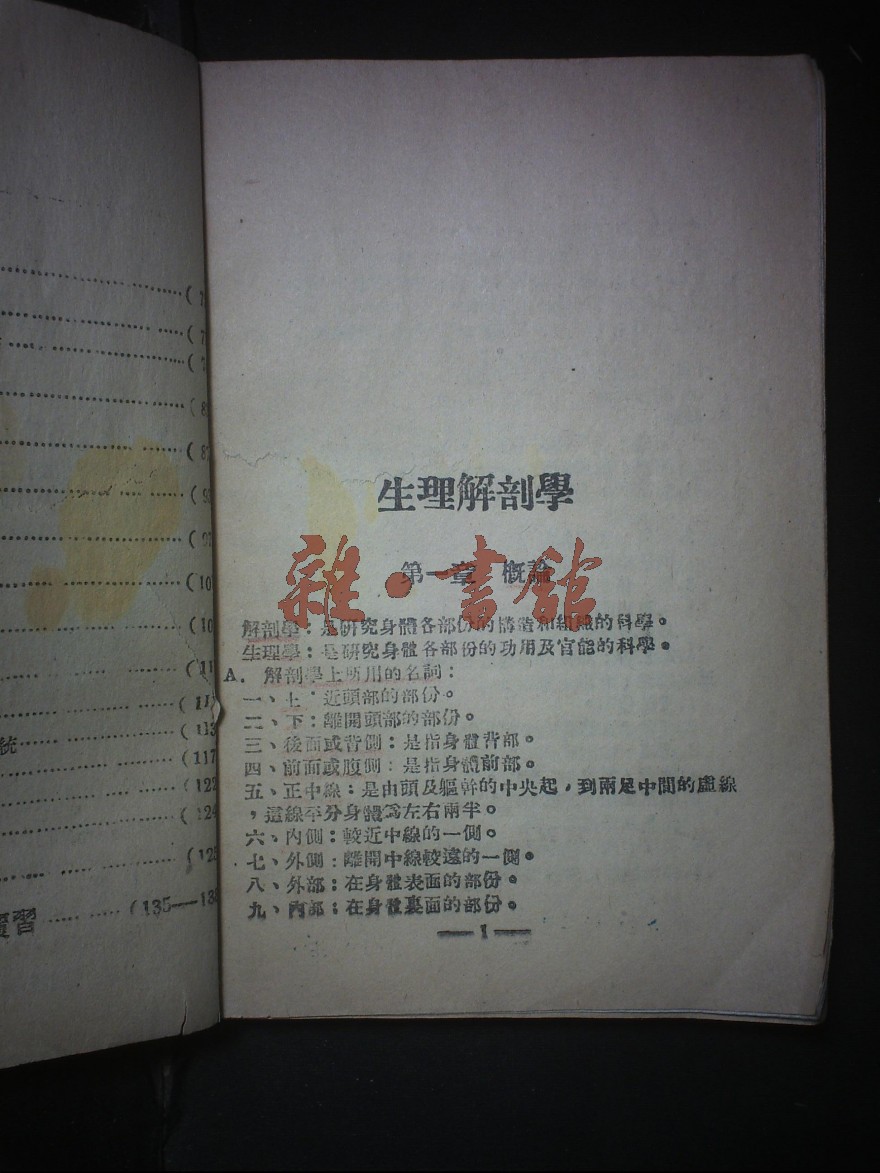 統
113
117
122
124
(135——13
習
生理解剖學
第一章 概論
雜·書館
解剖學：是研究身體各部份的構造和組織的科學。
生理學：是研究身體各部份的功用及官能的科學。
A. 解剖學上所用的名詞：
一、上：近頭部的部份。
二、下：離開頭部的部份。
三、後面或背側：是指身體背部。
四、前面或腹側：是指身體前部。
五、正中線：是由頭及軀幹的中央起，到兩足中間的虛線
，這線平分身體爲左右兩半。
六、內側：較近中線的一側。
七、外側：離開中線較遠的一側。
八、外部：在身體表面的部份。
九、內部：在身體裏面的部份。
— 1 —